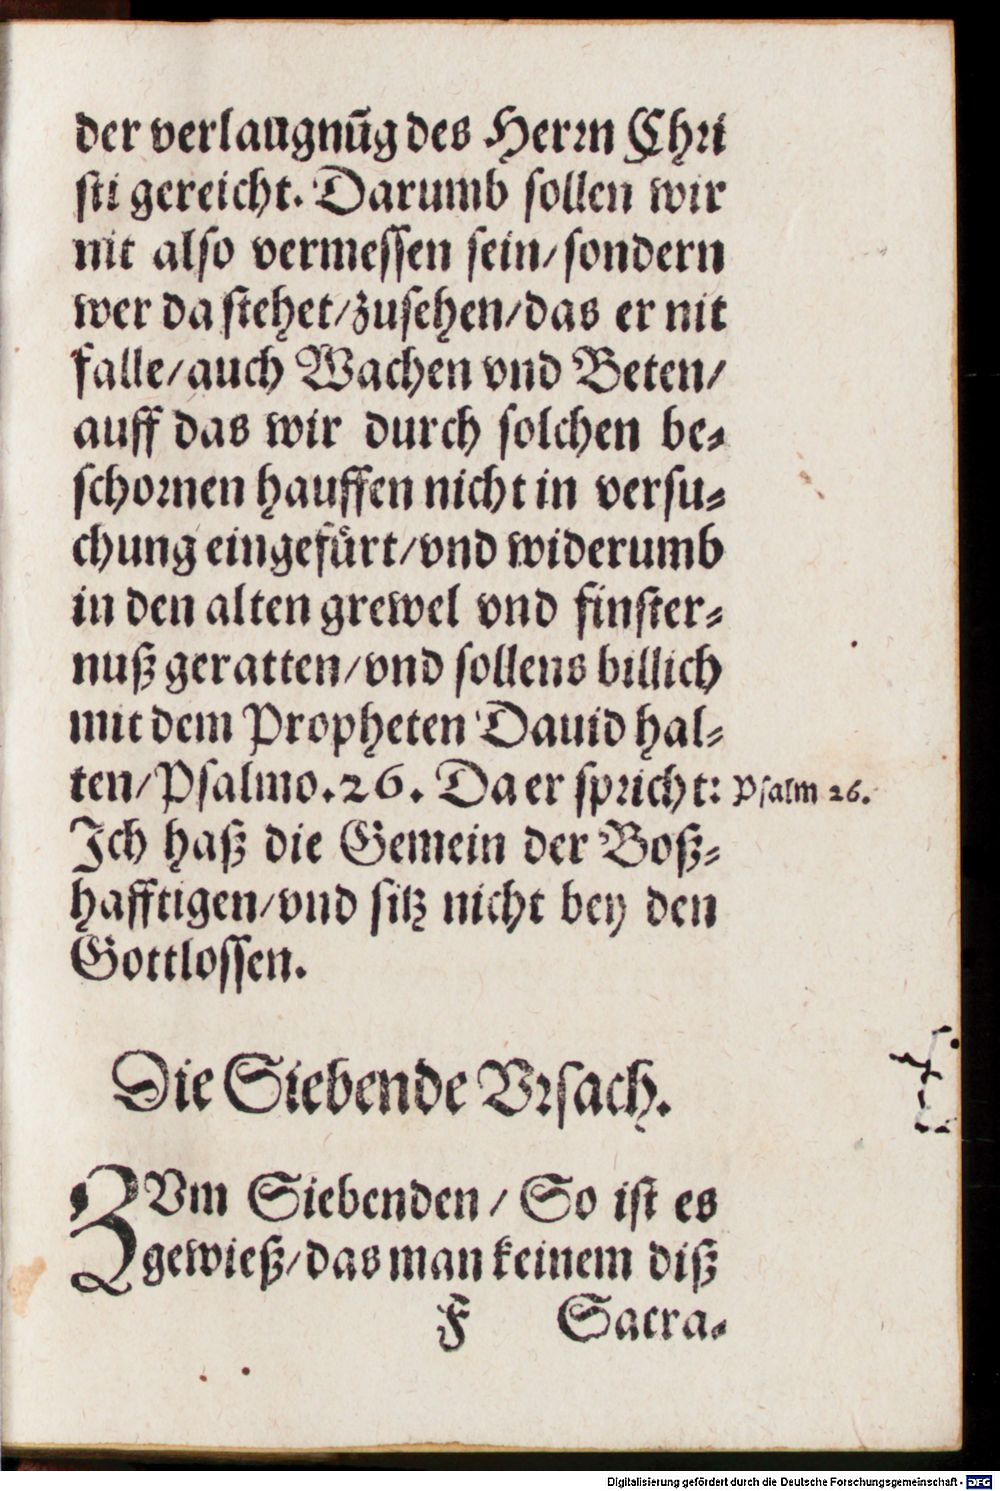 der verlaugnūg des Herrn Chri
sti gereicht. Darumb sollen wir
nit also vermessen sein/sondern
wer da stehet/zusehen/das er nit
falle/auch Wachen vnd Beten/
auff das wir durch solchen be-
schornen hauffen nicht in versu-
chung eingefürt/vnd widerumb
in den alten grewel vnd finster-
nuß geratten/vnd sollens billich
mit dem Propheten Dauid hal-
ten/Psalmo.26. Da er spricht: Psalm 26.
Ich haß die Gemein der Boß-
hafftigen/vnd sitz nicht bey den
Gottlossen.
Die Siebende Vrsach.
ZVm Siebenden/ So ist es
gewieß/das man keinem diß
F Sacra-
Digitalisierung gefördert durch die Deutsche Forschungsgemeinschaft - DFG